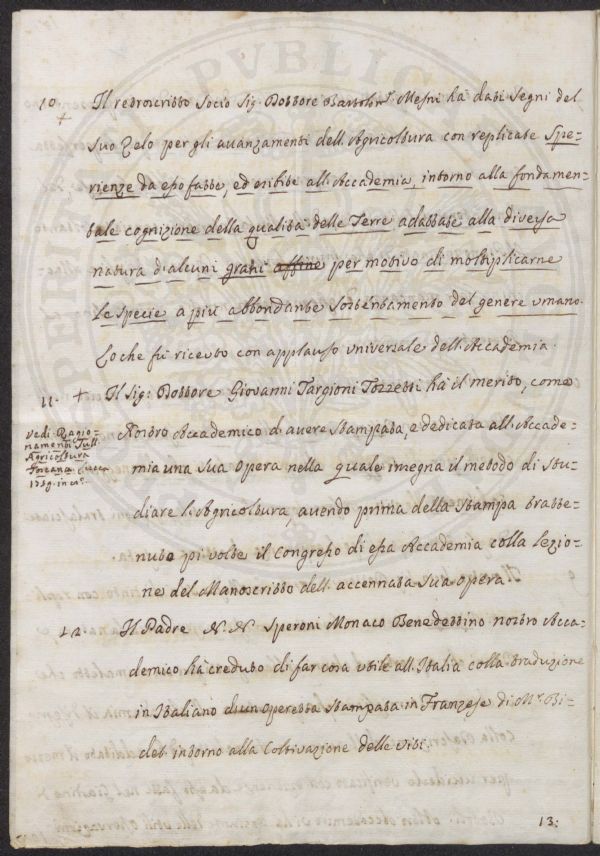 10. Il retroscritto Socio Sig. Dottore Bartolin.^i Mesni ha dati segni del
+
suo Zelo per gli avanzamenti dell'Agricoltura con replicate Spe=
rienze da esso fatte, ed esibite all'Accademia, intorno alla fondamen=
tale cognizione della qualità delle Terre adattate alla diversa
natura d'alcuni grani affine per motivo di moltiplicarne
le specie a più abbondante sostentamento del genere umano.
Lo che fù ricevuto con applauso universale dell'Accademia.
11. + Il Sig: Dottore Giovanni Targioni Tozzetti hà il merito, come
Nostro Accademico d'avere stampata, e dedicata all'Accade=
mia una sua opera nella quale insegna il metodo di Stu=
diare l'Agricoltura, avendo prima della Stampa tratte=
nuto più volte il Congresso di essa Accademia colla lezio=
ne del Manoscritto dell'accennata sua opera
vedi Ragio=
namenti Sull'
Agricoltura
Toscana Lucca
1759. in 8.°
12. Il Padre N.N. Speroni Monaco Benedettino nostro Acca=
demico hà creduto di far cosa utile all'Italia colla traduzione
in Italiano d'un operetta stampata in Franzese di M.^r Bi=
det intorno alla Coltivazione delle Viti.
13: